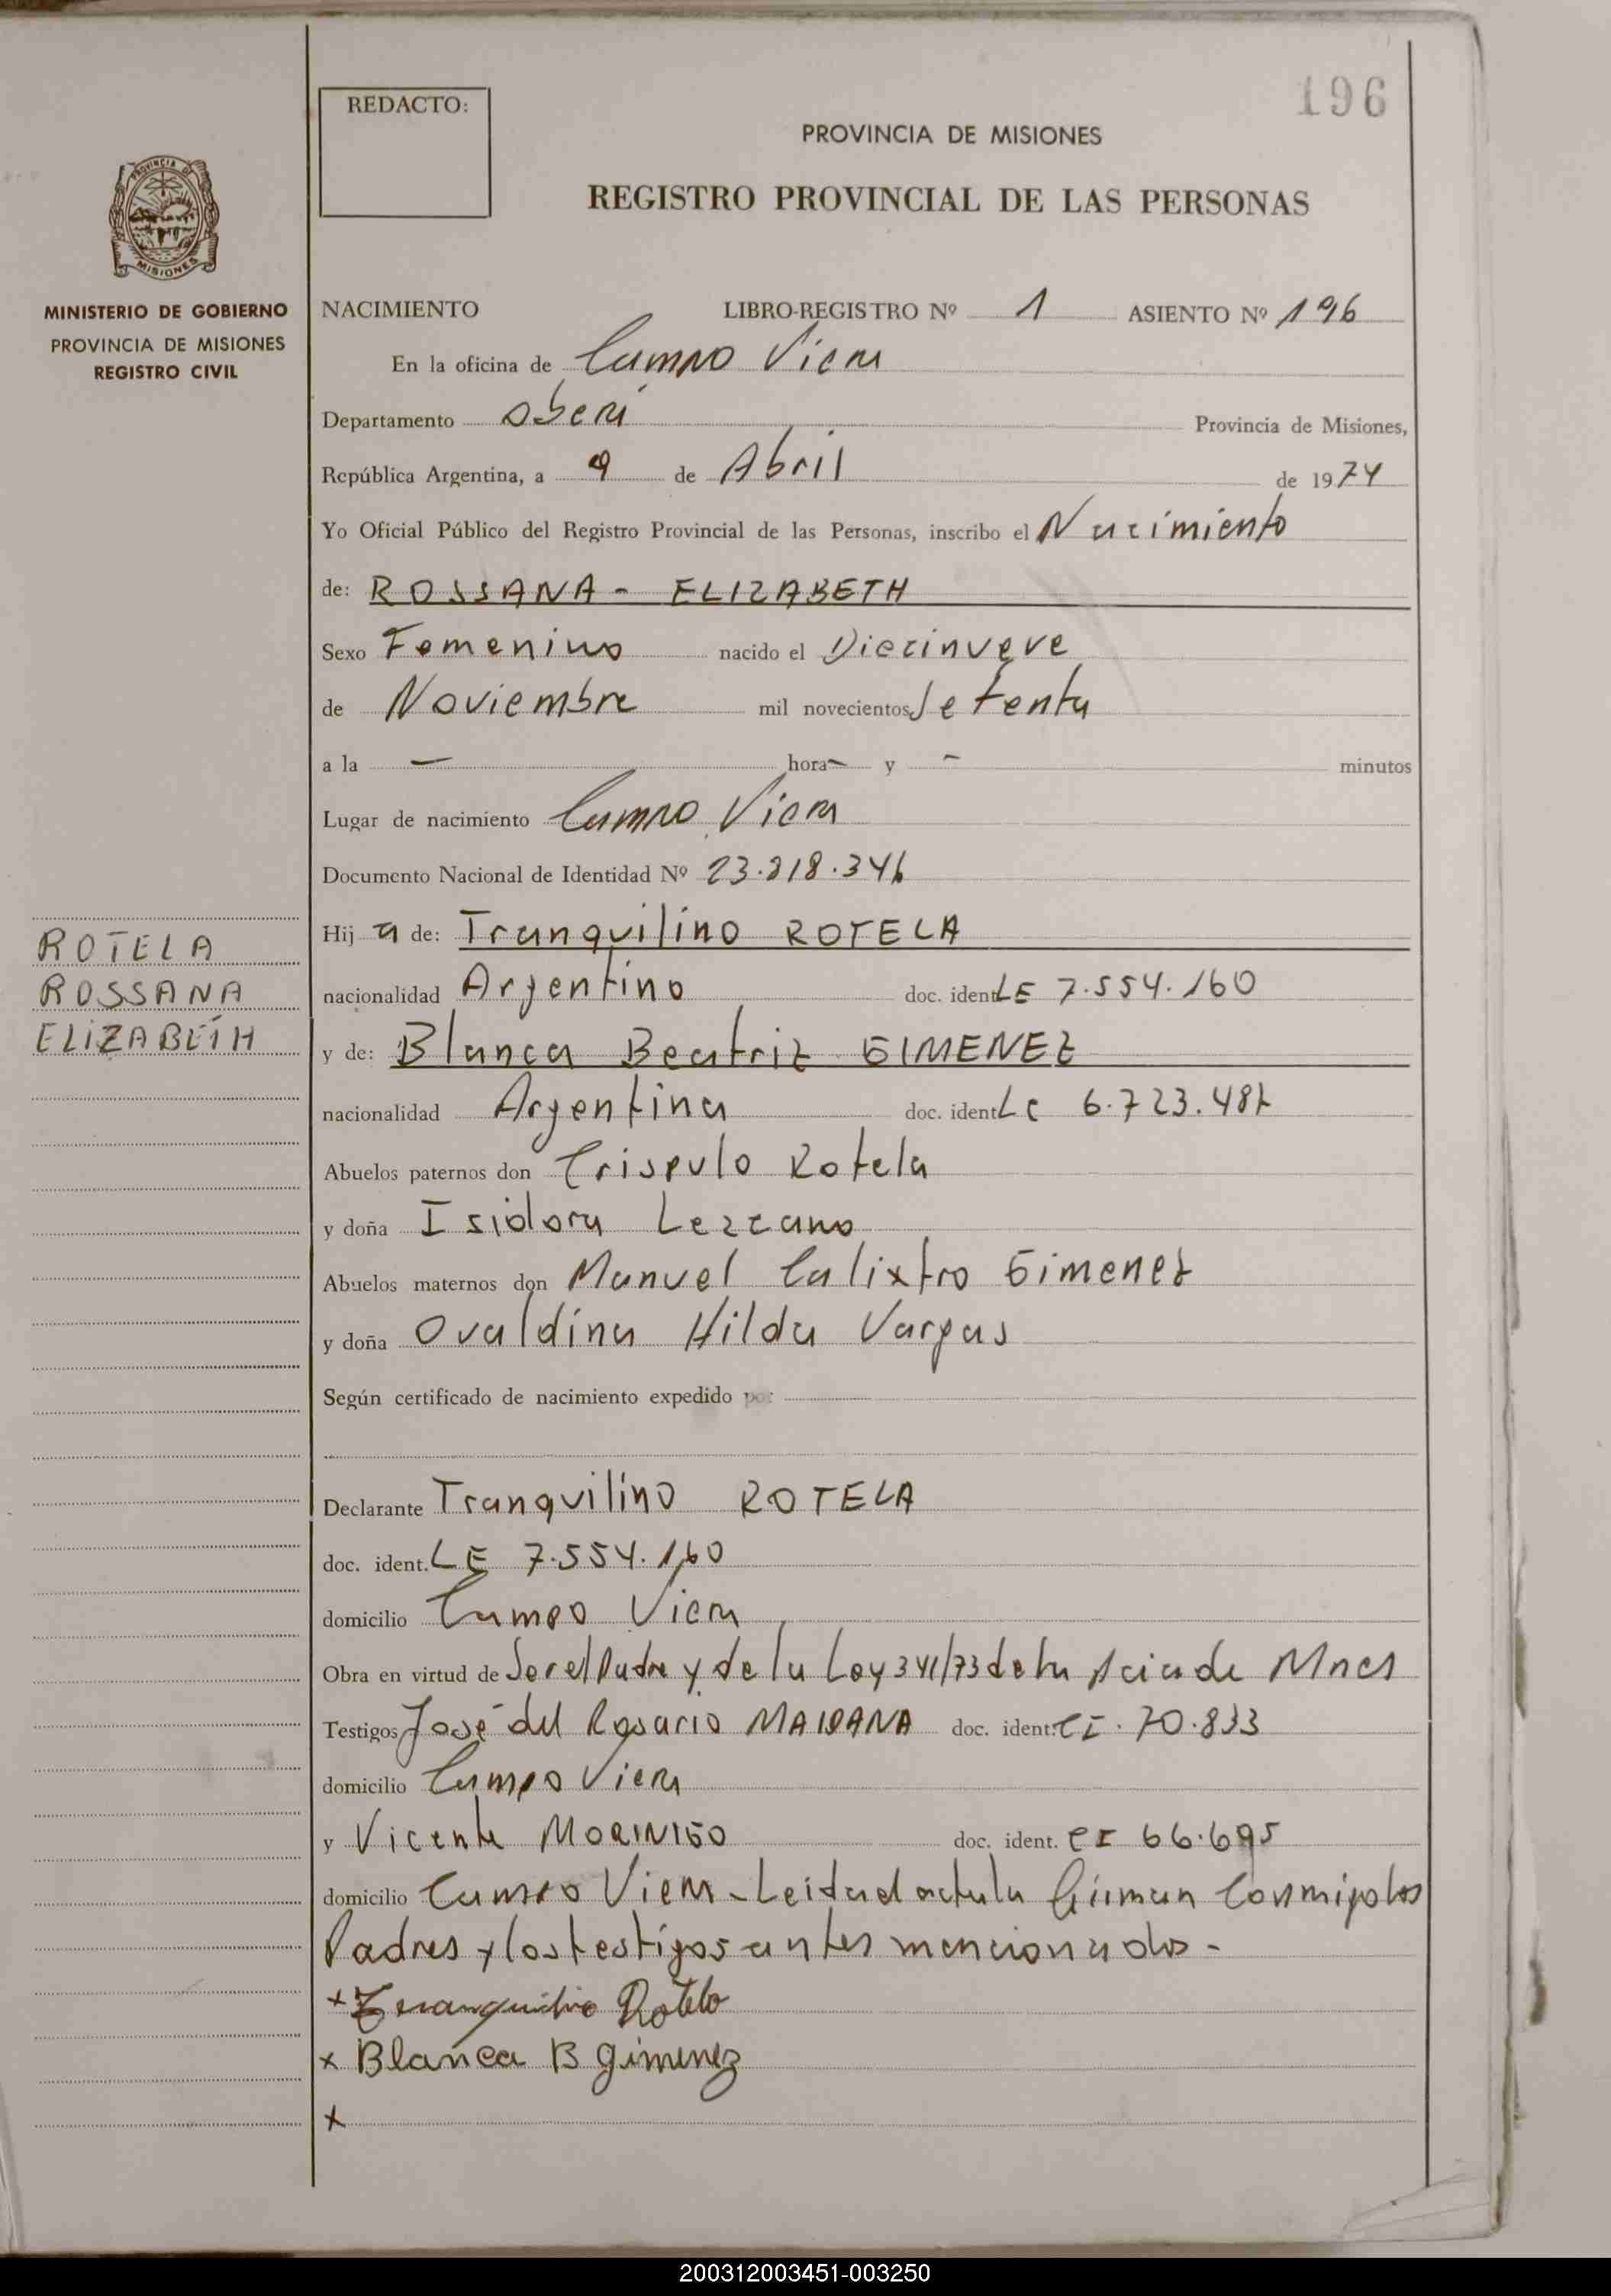 196
REDACTO:
PROVINCIA DE MISIONES
REGISTRO PROVINCIAL DE LAS PERSONAS
PROVINCIA DE
MISIONES
MINISTERIO DE GOBIERNO
PROVINCIA DE MISIONES
REGISTRO CIVIL
NACIMIENTO LIBRO-REGISTRO Nº 1 ASIENTO Nº 196
En la oficina de Campo Viera
Departamento Oberá Provincia de Misiones,
República Argentina, a 9 de Abril de 1974
Yo Oficial Público del Registro Provincial de las Personas, inscribo el Nacimiento
de: ROSSANA - ELIZABETH
Sexo Femenino nacido el Diecinueve
de Noviembre mil novecientos Setenta
a la — hora — y — minutos
Lugar de nacimiento Campo Viera
Documento Nacional de Identidad Nº 23.818.346
Hij a de: Tranquilino ROTELA
nacionalidad Argentino doc. ident. LE 7.554.160
y de: Blanca Beatriz GIMENEZ
nacionalidad Argentina doc. ident. LC
Abuelos paternos don Crispulo Rotela
y doña Isidora Lezcano
Abuelos maternos don Manuel Calixtro Gimenez
y doña Ovaldina Hilda Vargas
Según certificado de nacimiento expedido por
Declarante Tranquilino ROTELA
doc. ident. LE 7.554.160
domicilio Campo Viera
Obra en virtud de Ser el Padre y de la Ley 341/73 de la Pcia de Mnes
Testigos José del Rosario MAIDANA doc. ident. CI. 70.833
domicilio Campo Viera
y Vicente MORINIGO doc. ident. CI 66.695
domicilio Campo Viera - Leida el acta la firman conmigo los
Padres y los testigos antes mencionados -
x Tranquilino Rotela
x Blanca B Gimenez
x
ROTELA
ROSSANA
ELIZABETH
200312003451-003250